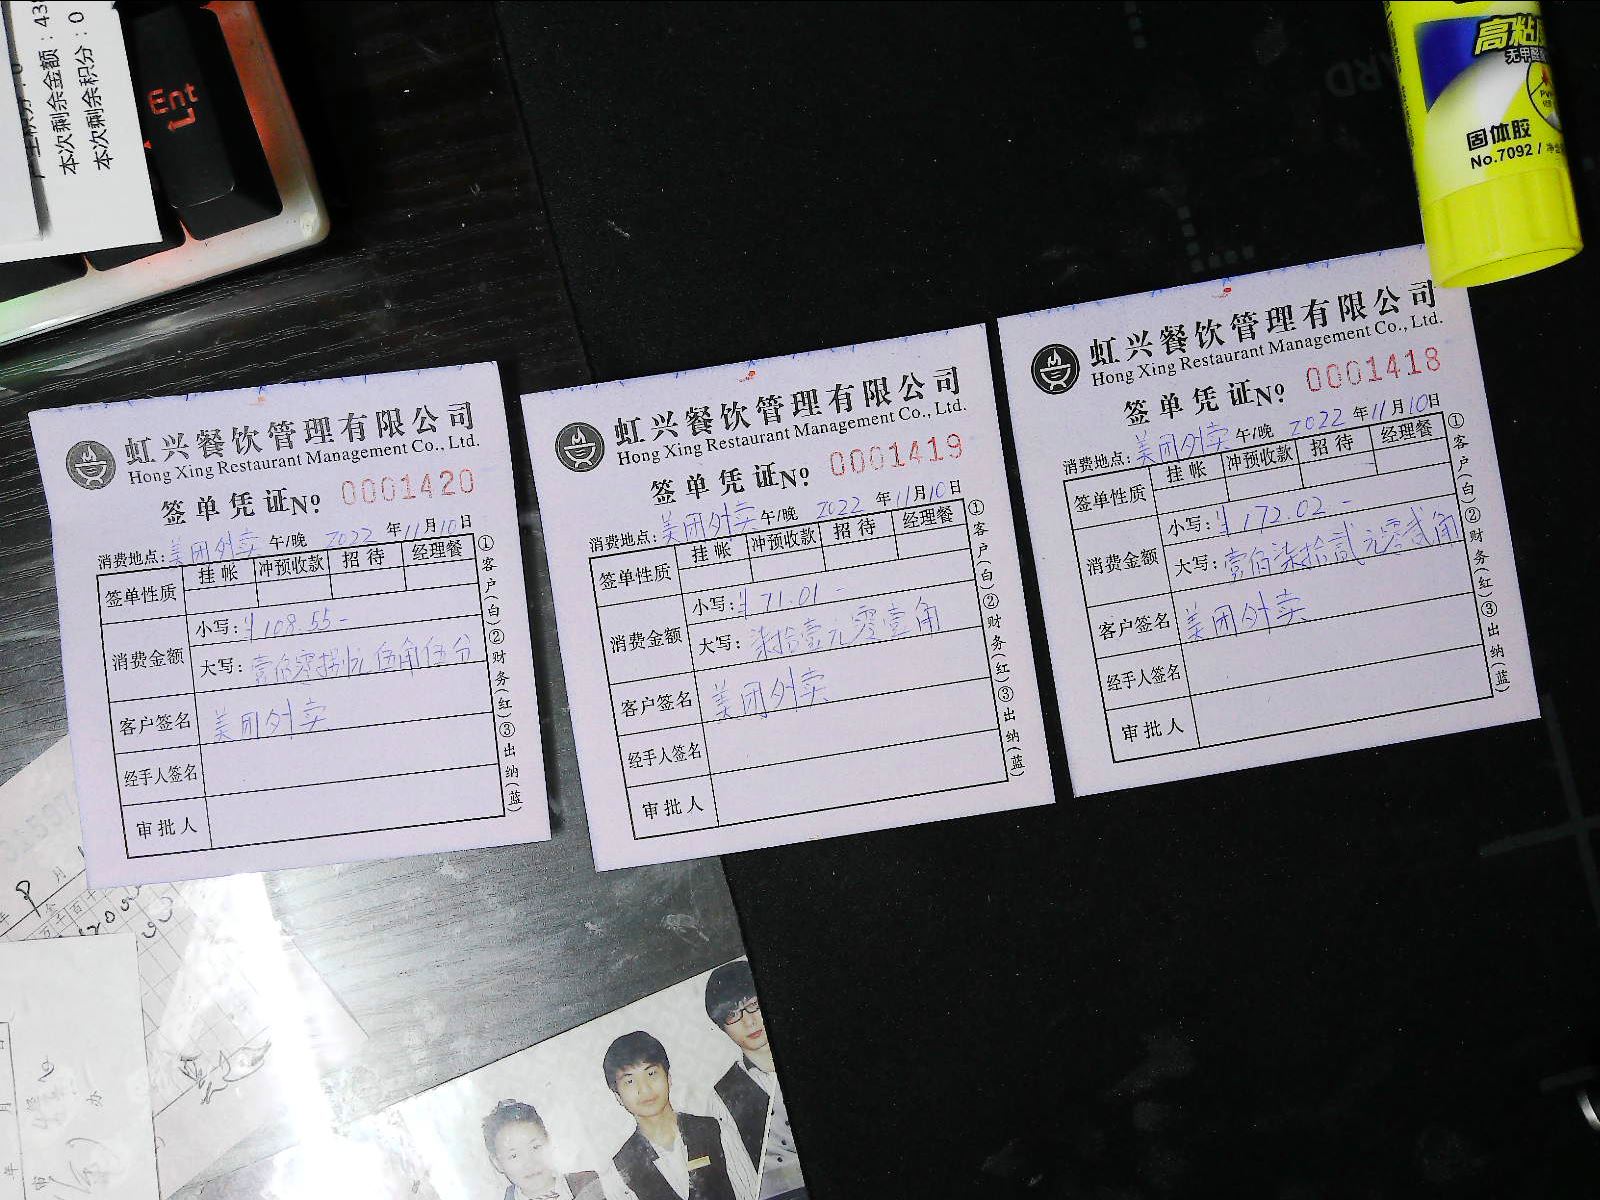 本次剩余金额：43
本次剩余积分：0
Ent
高粘
固体胶
No.7092 /
虹兴餐饮管理有限公司
Hong Xing Restaurant Management Co., Ltd.
签单凭证№ 0001420
消费地点：美团外卖 午/晚 2022 年 11 月 10 日
签单性质 挂帐 冲预收款 招待 经理餐
消费金额 小写：¥108.55-
大写：壹佰零捌元伍角伍分
客户签名 美团外卖
经手人签名
审批人
①客户(白)②财务(红)③出纳(蓝)
虹兴餐饮管理有限公司
Hong Xing Restaurant Management Co., Ltd.
签单凭证№ 0001419
消费地点：美团外卖 午/晚 2022 年 11 月 10 日
签单性质 挂帐 冲预收款 招待 经理餐
消费金额 小写：¥71.01-
大写：柒拾壹元零壹角
客户签名 美团外卖
经手人签名
审批人
①客户(白)②财务(红)③出纳(蓝)
虹兴餐饮管理有限公司
Hong Xing Restaurant Management Co., Ltd.
签单凭证№ 0001418
消费地点：美团外卖 午/晚 2022 年 11 月 10 日
签单性质 挂帐 冲预收款 招待 经理餐
消费金额 小写：¥172.02-
大写：壹佰柒拾贰元零贰角
客户签名 美团外卖
经手人签名
审批人
①客户(白)②财务(红)③出纳(蓝)